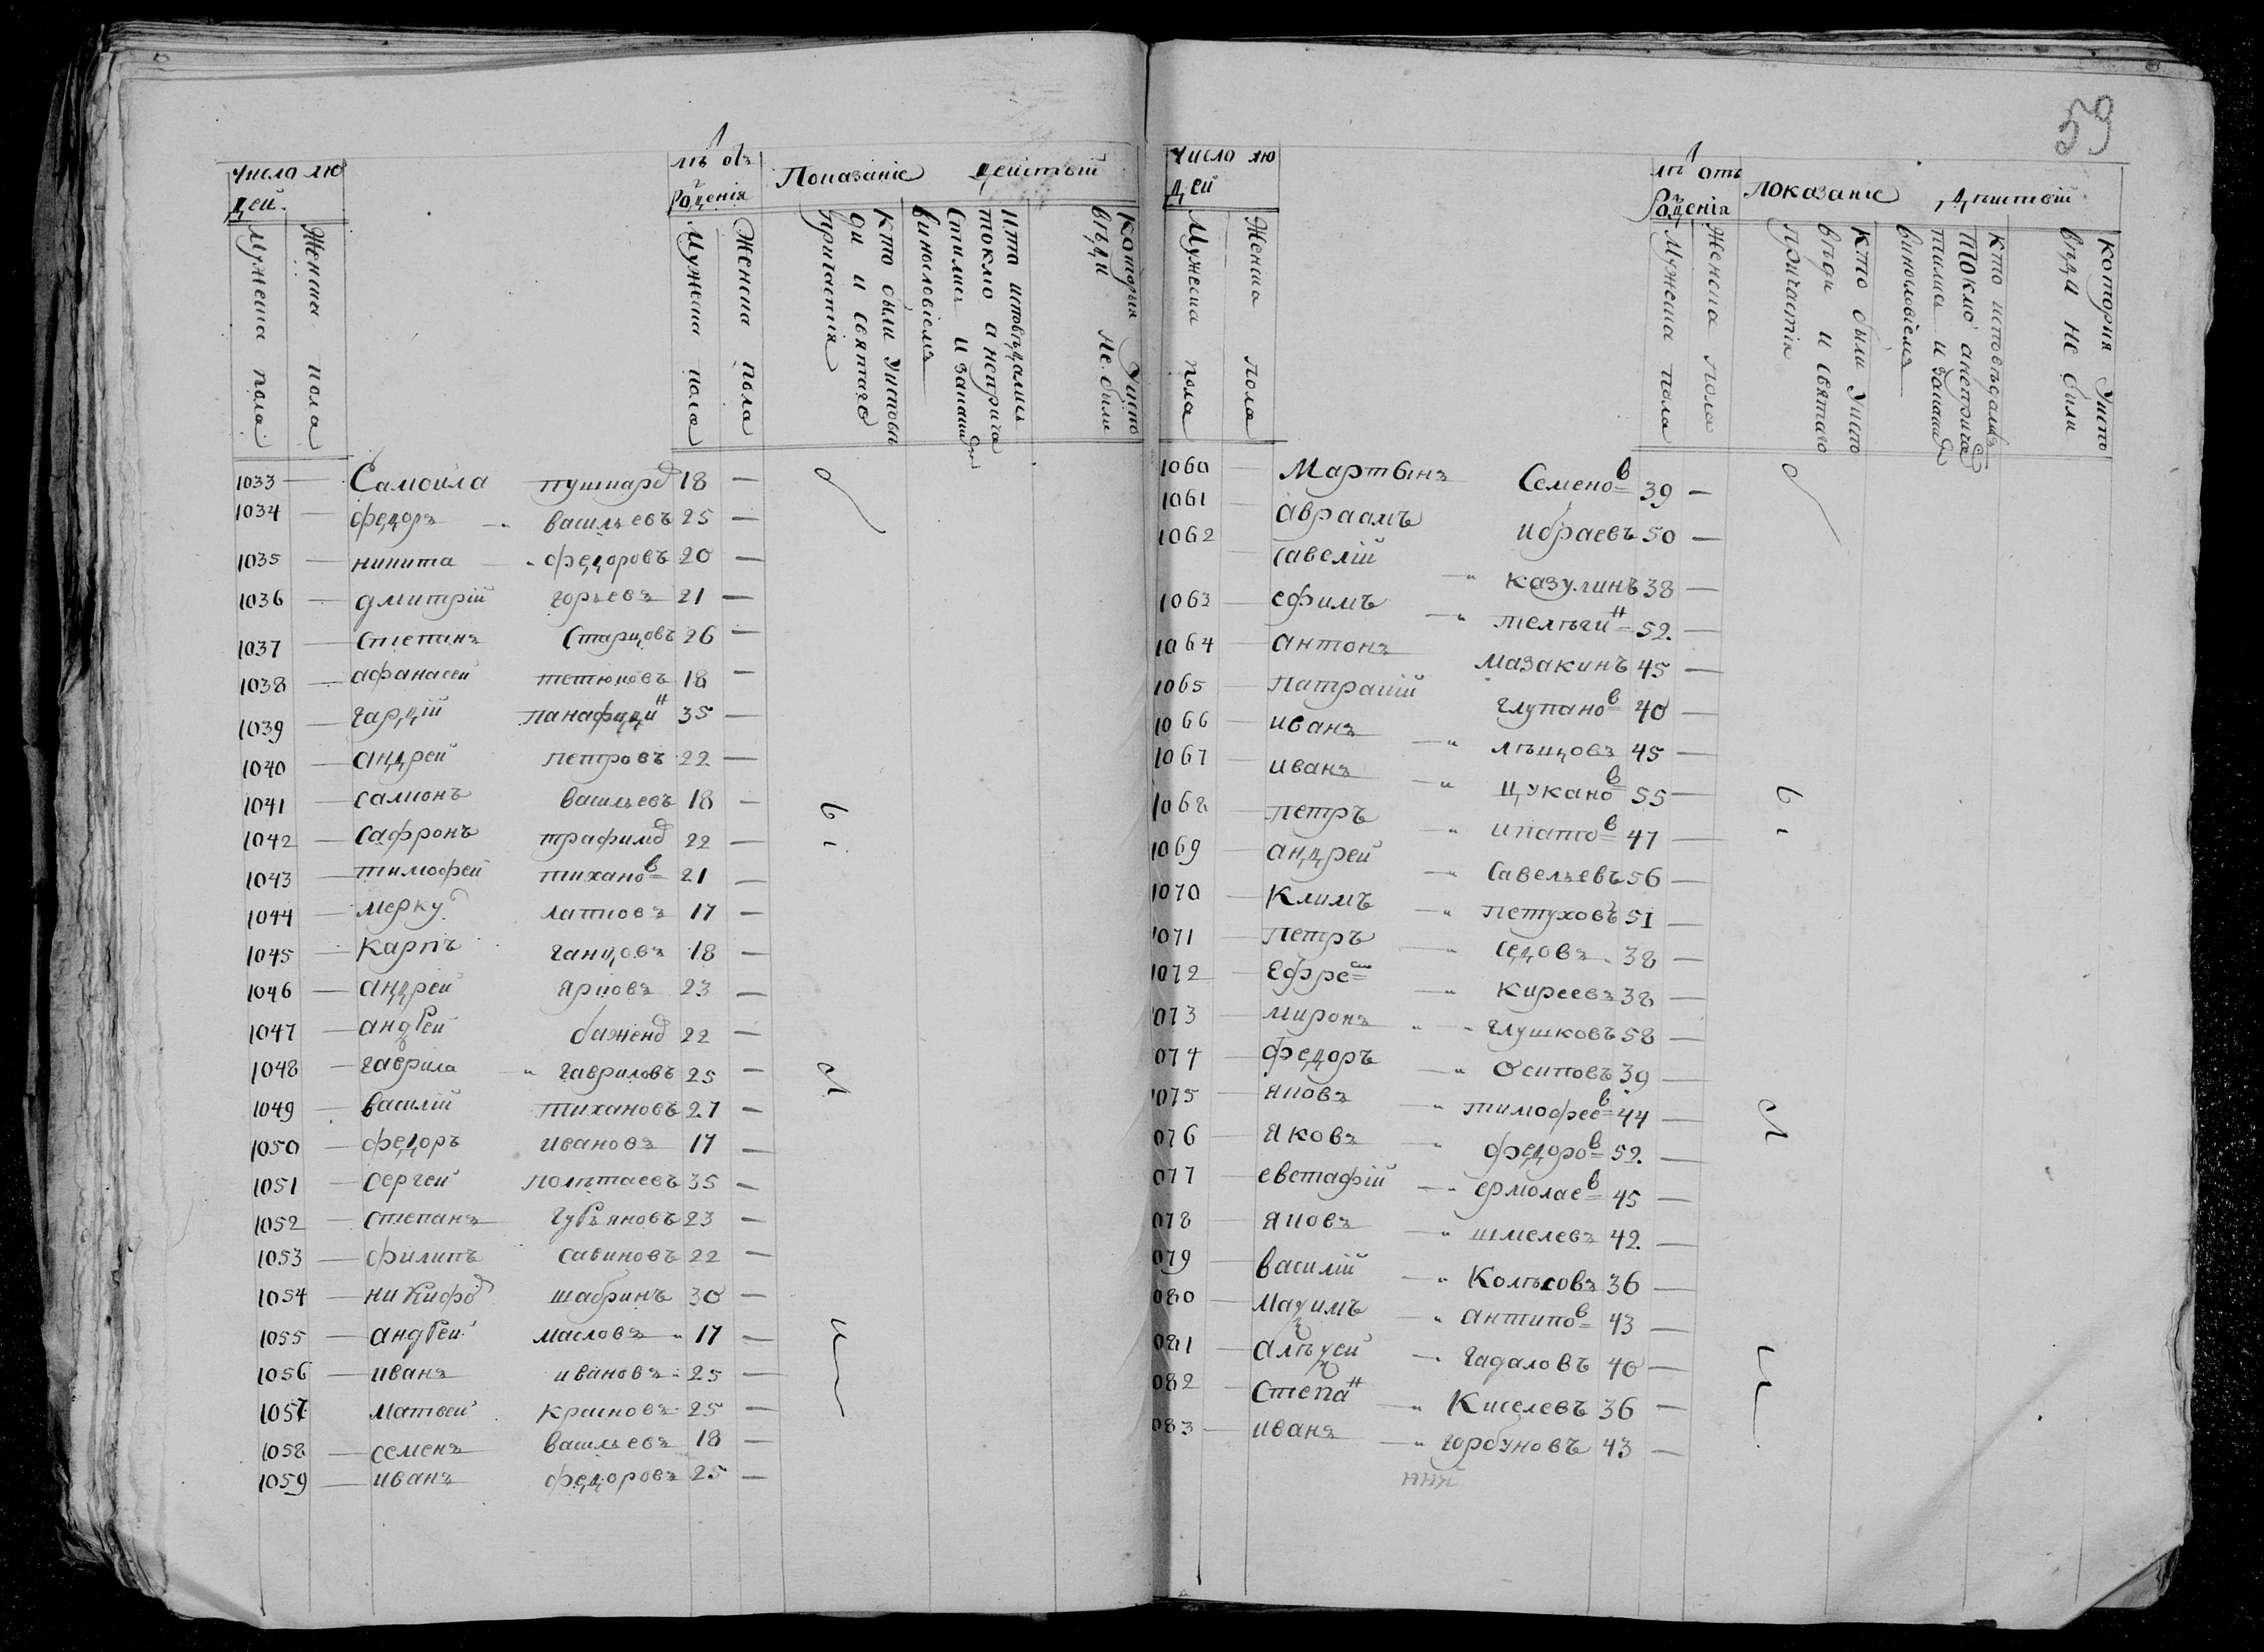 число лю
дей.
Мужеска пола
Женска пола
лѣ отъ
рожденія
Мужеска пола
Женска пола
Показаніе действій
кто были уиспове
ди и святаго
причастія
кто исповѣдались
токмо а неприча
стились и закаким
винословіемъ
Которыя уиспо
вѣди не были
1033 — Самойла пушкарев 18 —
1034 — федоръ васильевъ 25 —
1035 — никита федоровъ 20 —
1036 — дмитрій горьевъ 21 —
1037 — Степанъ Старцовъ 26 —
1038 — афанасей тетюковъ 18 —
1039 — гардій панафидин 35 —
1040 — андрей петровъ 22 —
1041 — самионъ васильевъ 18 —
1042 — Сафронъ трафимов 22 —
1043 — тимофей тиханов 21 —
1044 — мерку латновъ 17 —
1045 — Карпъ ганцовъ 18 —
1046 — андрей ярцовъ 23 —
1047 — андрей баженов 22 —
1048 — гаврила гавриловъ 25 —
1049 — василій тихановъ 27 —
1050 — федоръ ивановъ 17 —
1051 — сергей полѣтаевъ 35 —
1052 — степанъ гурьяновъ 23 —
1053 — филипъ савиновъ 22 —
1054 — никифо шабринъ 30 —
1055 — андрей масловъ 17 —
1056 — иванъ ивановъ 25 —
1057 — матвей красновъ 25 —
1058 — семенъ васильевъ 18 —
1059 — иванъ федоровъ 25 —
были
59
число лю
дей
Мужеска пола
Женска пола
лѣ отъ
рожденія
Мужеска пола
Женска пола
показаніе дѣиствій
кто были уиспо
вѣди и святаго
причастія
кто исповѣдались
токмо анеприча
тились и закаким
винословіемъ
которыя уиспо
вѣди не были
1060 — Мартынъ Семенов 39 —
1061 — авраамъ ибраевъ 50 —
1062 — савелій казулинъ 38 —
1063 — ефимъ телѣгин 52. —
1064 — антонъ мазакинъ 45 —
1065 — патракій глупанов 40 —
1066 — иванъ лѣвцовъ 45 —
1067 — иванъ цуканов 55 —
1068 — петръ ипатов 47 —
1069 — андрей Савельевъ 56 —
1070 — Климъ петуховъ 51 —
1071 — петръ седовъ 38 —
1072 — Ефрем киреевъ 38 —
073 — миронъ глушковъ 58 —
074 — федоръ осиповъ 39 —
075 — яковъ тимофеев 44 —
076 — яковъ федоров 52. —
077 — евстафій ермолаев 45 —
078 — яковъ шмелевъ 42. —
079 — василій Колѣсовъ 36 —
080 — махимъ антипов 43 —
081 — алѣхѣей гадаловъ 40 —
082 — степан Киселевъ 36 —
083 — иванъ горбуновъ 43 —
были